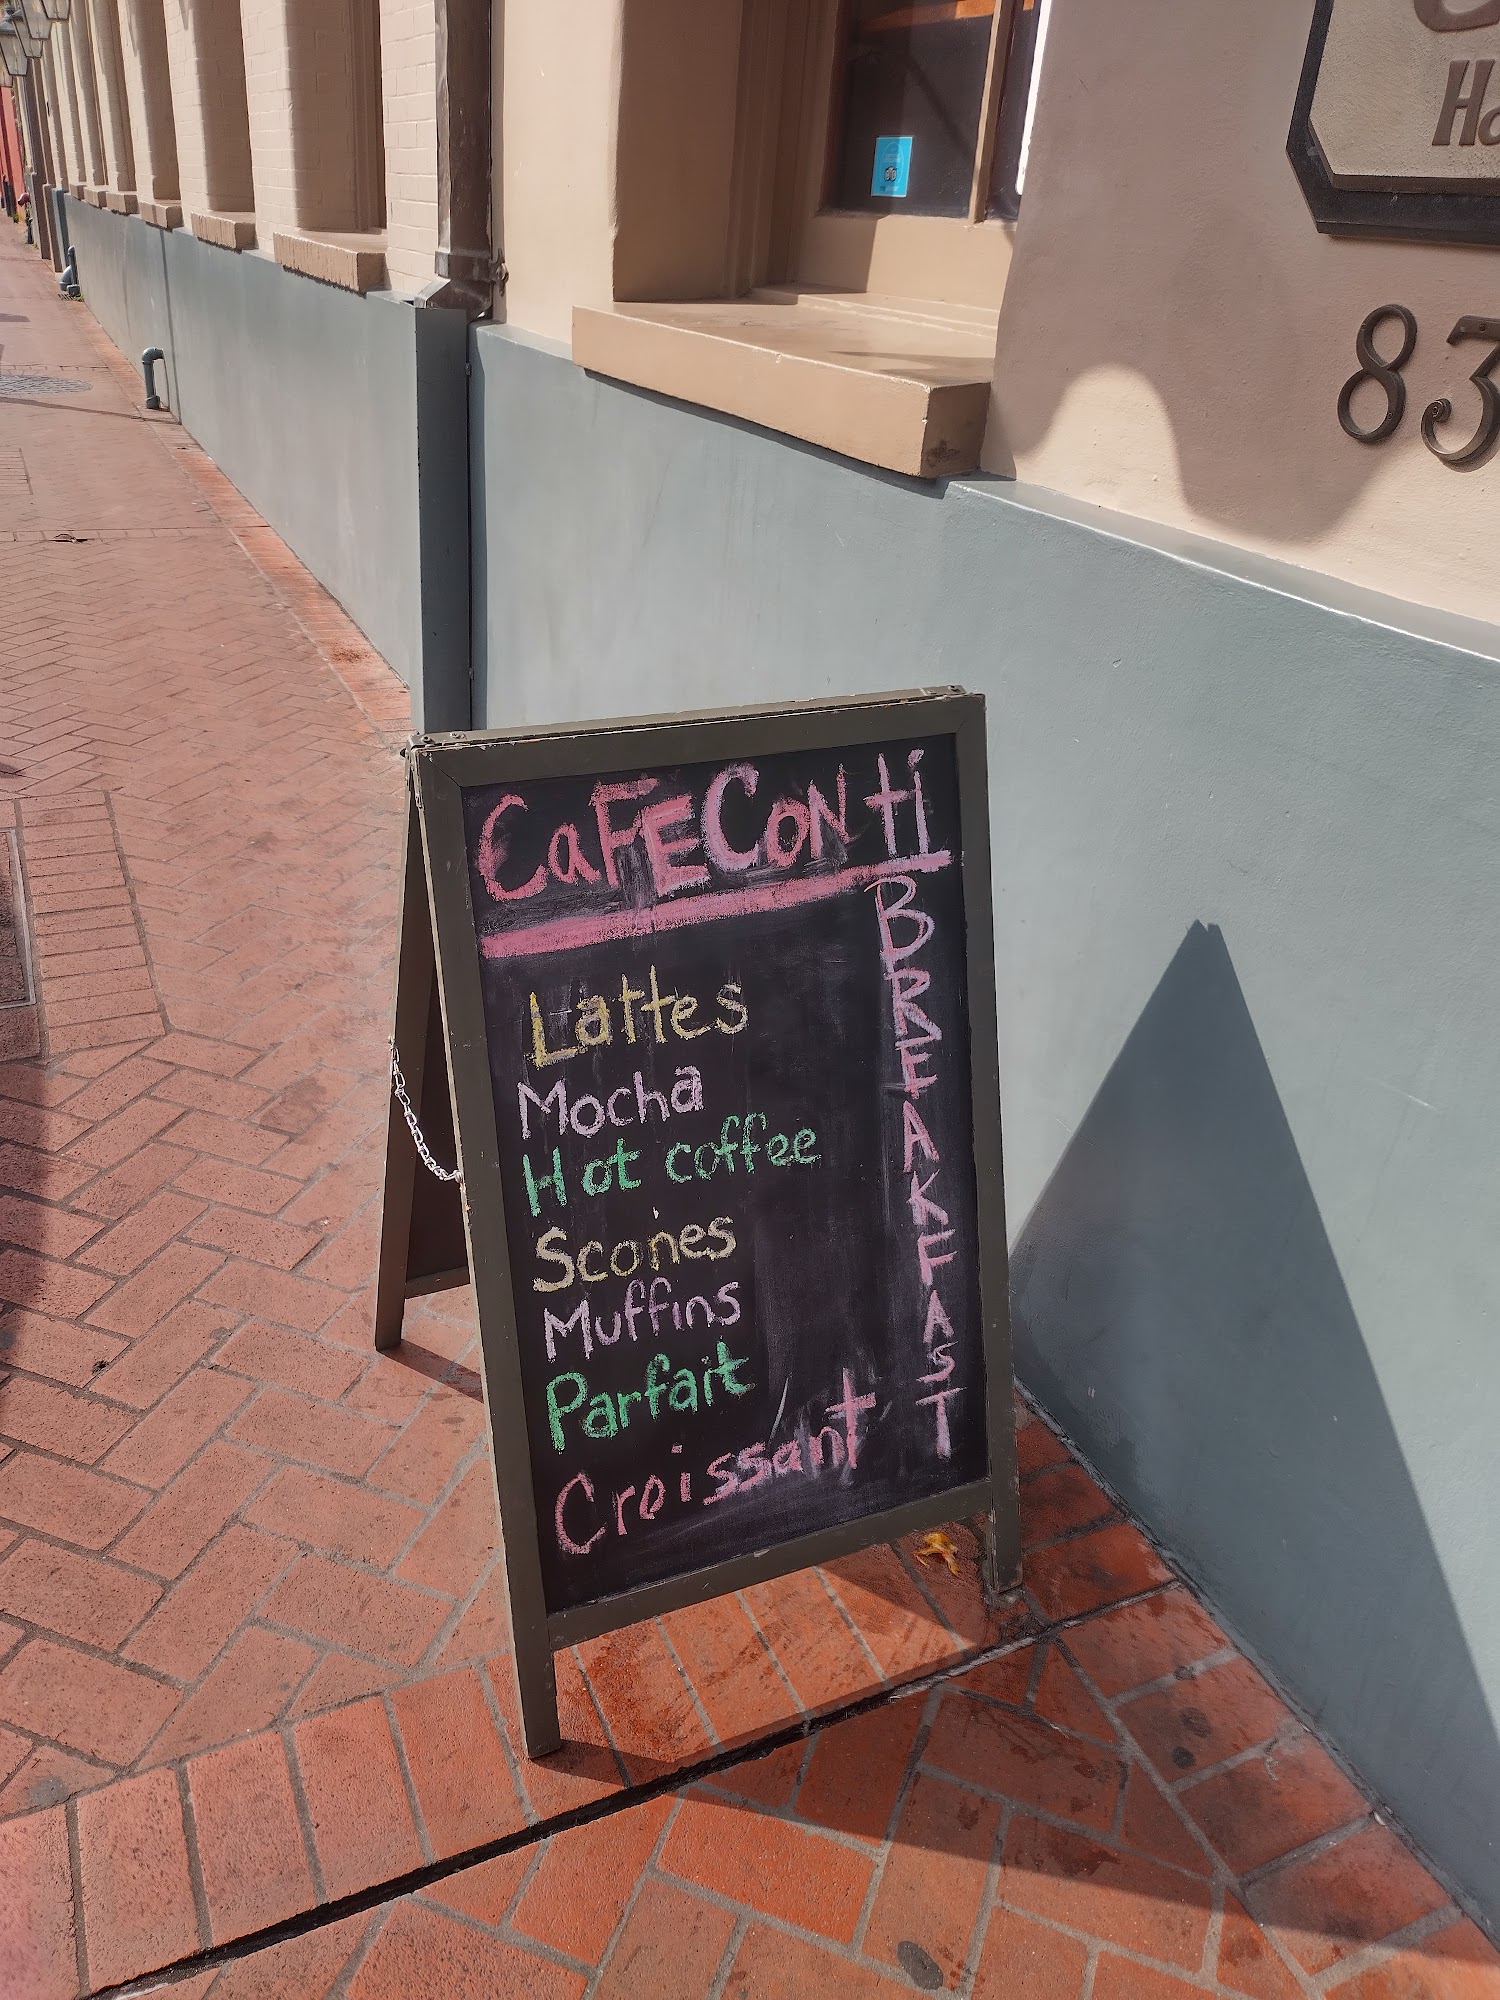 Ho
83
CaFE Conti
BREAKFAST
Lattes
Mocha
Hot coffee
Scones
Muffins
Parfait
Croissant